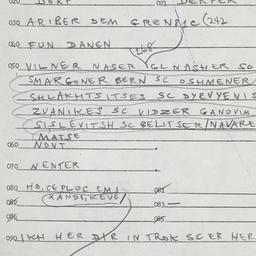 020 DORF 021 DERFER
030 ARIBER DEM GRENETC (242
040 FUN DANEN
268
050 VILNER NASER / GL NASHER SC
SMARGONER BERN SC OSHMENER
SHLAKHTSITSES SC DYEVYENIS
ZVANIKES SC VIDZER GANOVIM
SISLEVITSH SC BELITSER/NAVARE
MATSE
060 NOVT
070 W ENTER
080 081
XANDI, KEVE
082 083
085
090 IKH HER DIR IN TROK SC ER HER